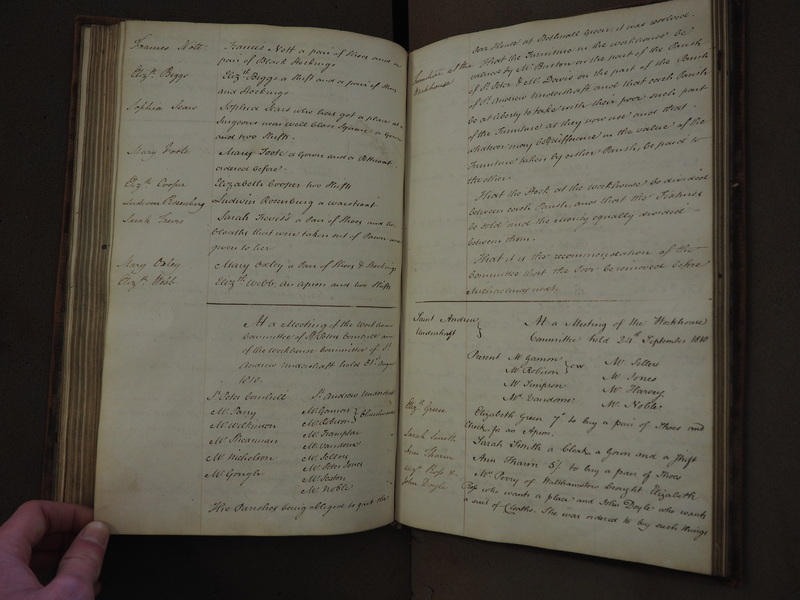 Frances Nott
Frances Nott a pair of Shoes and a
pair of Black Stockings
Elizth. Beggs
Elizth. Beggs a Shift and a pair of Shoes
and Stockings
Sophia Sears
Sophia Sears who has got a place at a
Surgeons near Well Close Square a Gown
and two Shifts
Mary Foote
Mary Foote a Gown and a Petticoat
ordered before
Elizth. Cooper
Elizabeth Cooper two Shifts
Ludwin Rosenburg
Ludwin Rosenburg a waistcoat
Sarah
Sarah a Pair of Shoes and the
Cloaths that were taken out of Pawn
given to her
Mary Oxley
Mary Oxley a Pair of Shoes & Stockings
Elizth. Webb
Elizth. Webb an Apron and two Shifts
At a Meeting of the Workhouse
Committee of St. Peter Cornhill and
of the Workhouse Committee of St.
Andrew Undershaft held 31st. Augt.
1810.
St. Peter Cornhill St. Andrew Undershaft
Mr. Parry Mr. Gamon } Churchwardens
Mr. Wilkinson Mr. Robson
Mr. Shearman Mr. Frampton
Mr. Vandome
Mr. Nicholson Mr. Sellers
Mr. Peter Jones
Mr. Gough Mr. Sexton
Mr. Noble
The Parishes being obliged to quit the
poor House at Stockwell Green, it was resolved.
Furniture at the
Workhouse
That the Furniture in the workhouse be
valued by Mr. Burton on the part of the Parish
of St. Peter & Mr. Davis on the part of the Parish
of St. Andrew Undershaft and that each Parish
be at liberty to take with their poor such part
of the Furniture as they now use and that
whatever may be difference in the value of the
Furniture taken by either Parish, be paid to
the other.
That the Stock at the workhouse be divided
between each Parish, and that the Fixtures
be sold and the Money equally divided
between them.
That it is the recommendation of the
Committee that the Poor be removed before
Michaelmas next.
Saint Andrew
Undershaft }
At a Meeting of the Workhouse
Committee held 24th. September 1810
Present Mr. Gamon } CW. Mr. Sellers
Mr. Robson Mr. Jones
Mr. Simpson Mr. Harvey
Mr. Vandome Mr. Noble
Elizth. Green
Elizabeth Green 7s. to buy a pair of Shoes and
Check for an Apron.
Sarah Smith
Sarah Smith a Cloak a Gown and a Shift
Ann Tharn
Ann Tharn 5/. to buy a pair of Shoes
Elizth. Rose &
John Doyle
Mr. Perry of Walthamstow brought Elizabeth
Rose who wants a place and John Doyle who wants
a suit of Cloaths. She was ordered to buy such things